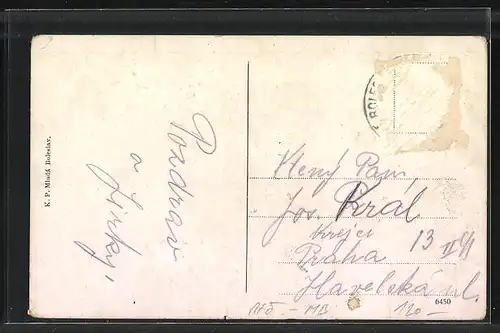 K. P. Mladá Boleslav.
Pozdrav
a
BOLES
Ctený Pan
Jos. Král
Krejčí
Praha 13 II/
Havelská ul.
6450
- MB
120-